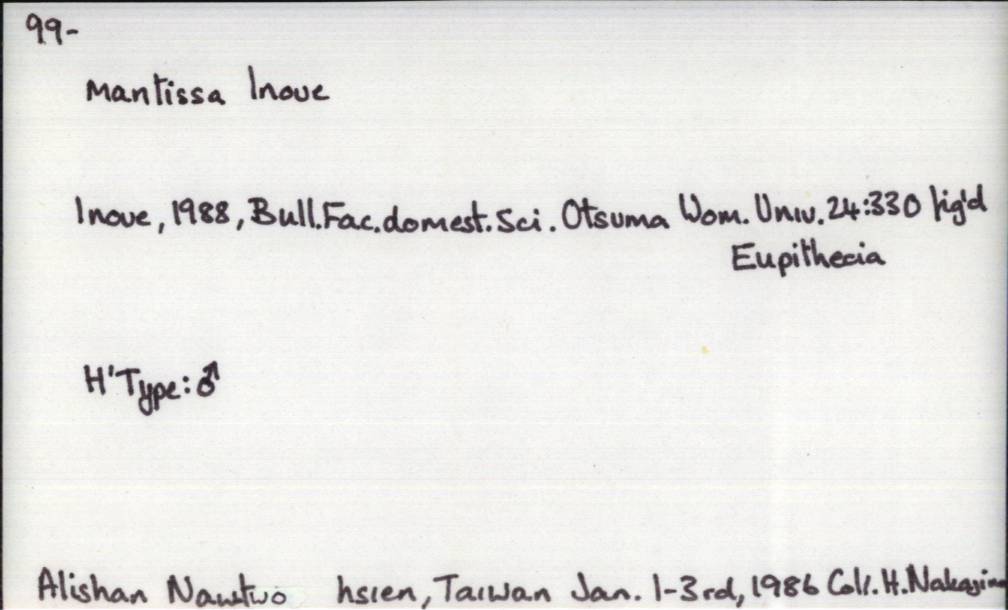 99-
Mantissa Inoue
Inoue, 1988, Bull.Fac.domest.Sci. Otsuma Wom. Univ. 24:330 fig'd
Eupithecia
H'Type: ♂
Alishan hsien, Taiwan Jan. 1-3rd, 1986 Coll. H.